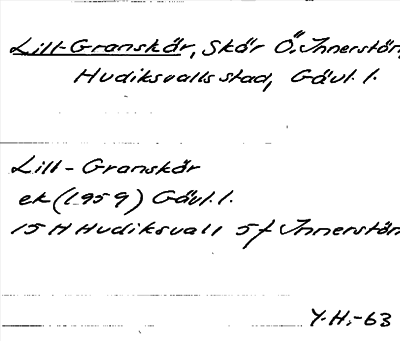 Lill-Granskär, Skär Ö. Innerstön,
Hudiksvalls stad, Gävl. l.
Lill-Granskär
ek (1959) Gävl. l.
15 H Hudiksvall 5f Innerstön
Y.H.-63